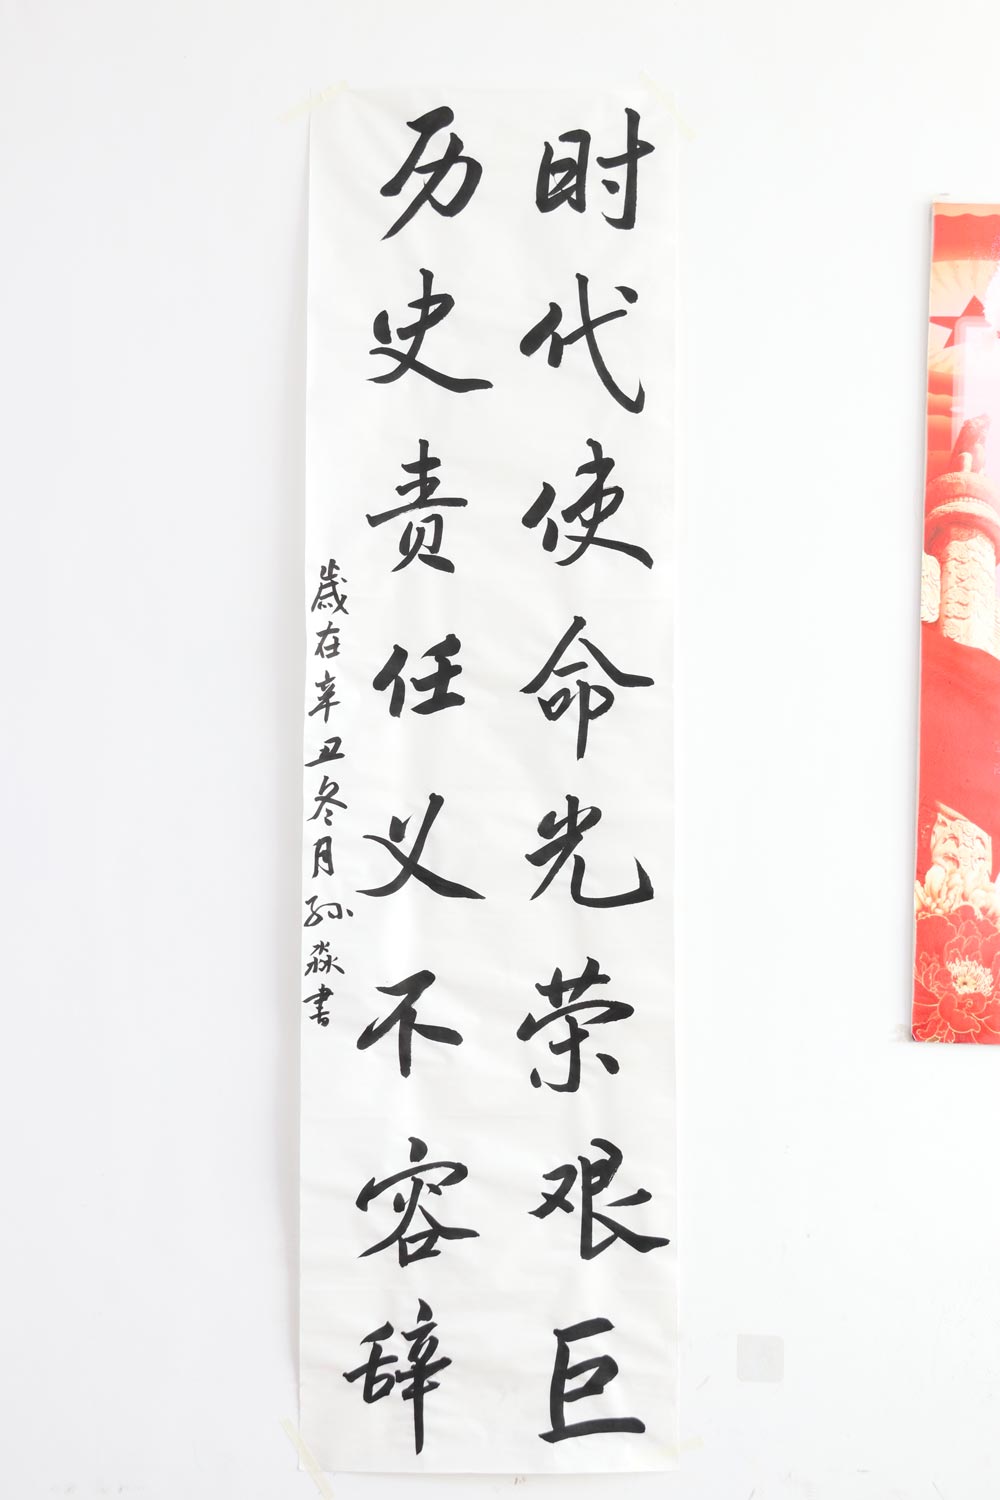 时代使命光荣艰巨
历史责任义不容辞
歲在辛丑冬月孙淼書